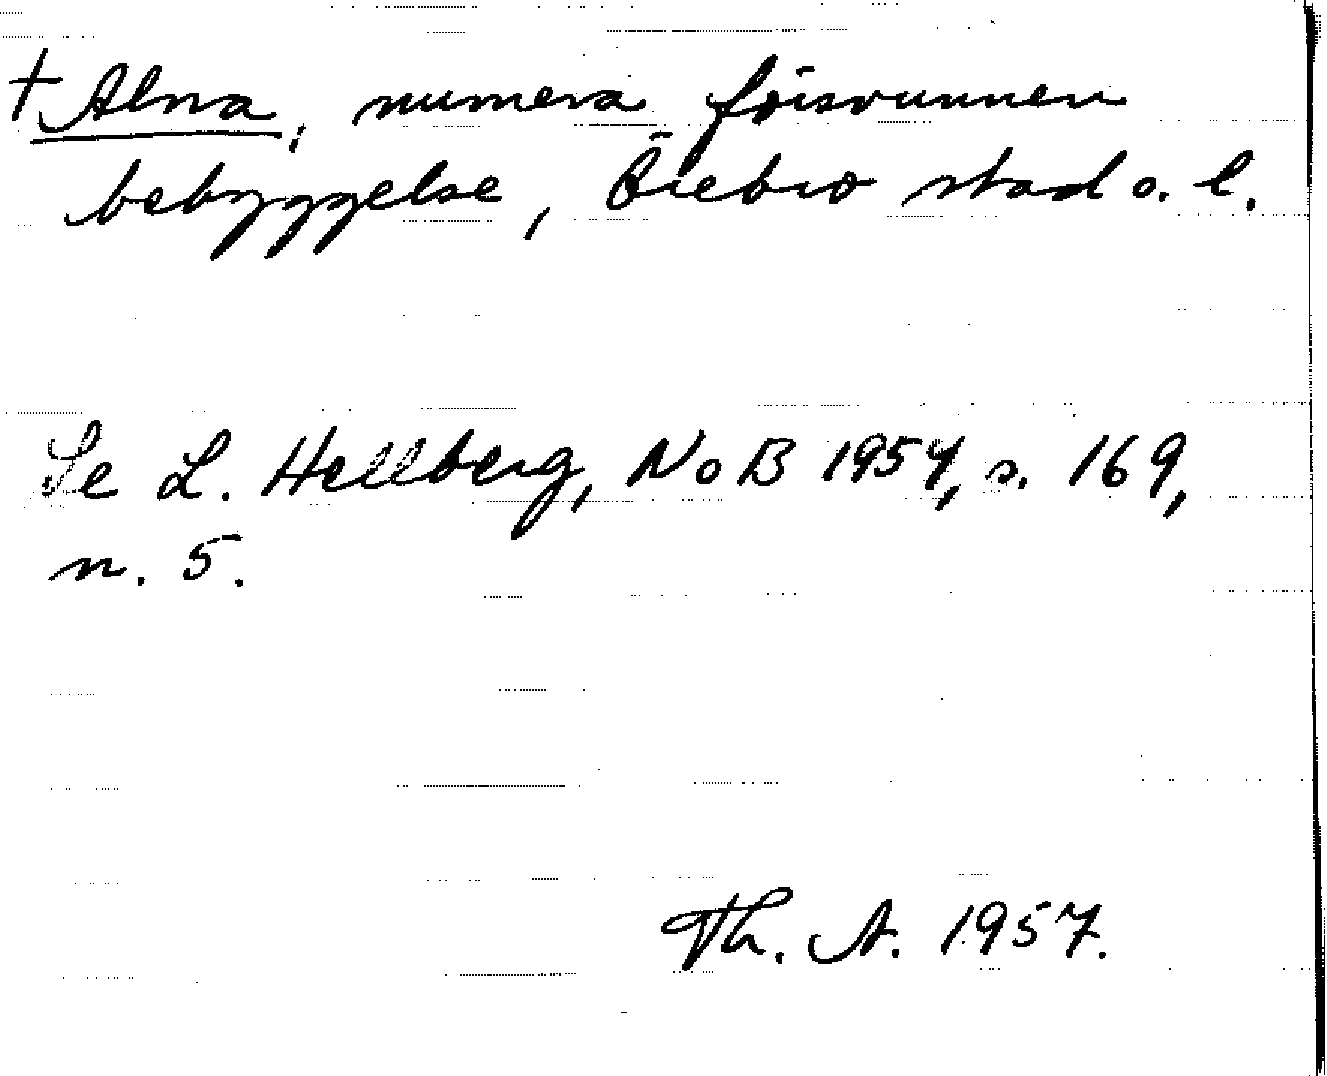 † Alna, numera försvunnen
bebyggelse, Örebro stad o. l.
Se L. Hellberg, NoB 1954, s. 169,
n. 5.
Th. A. 1957.